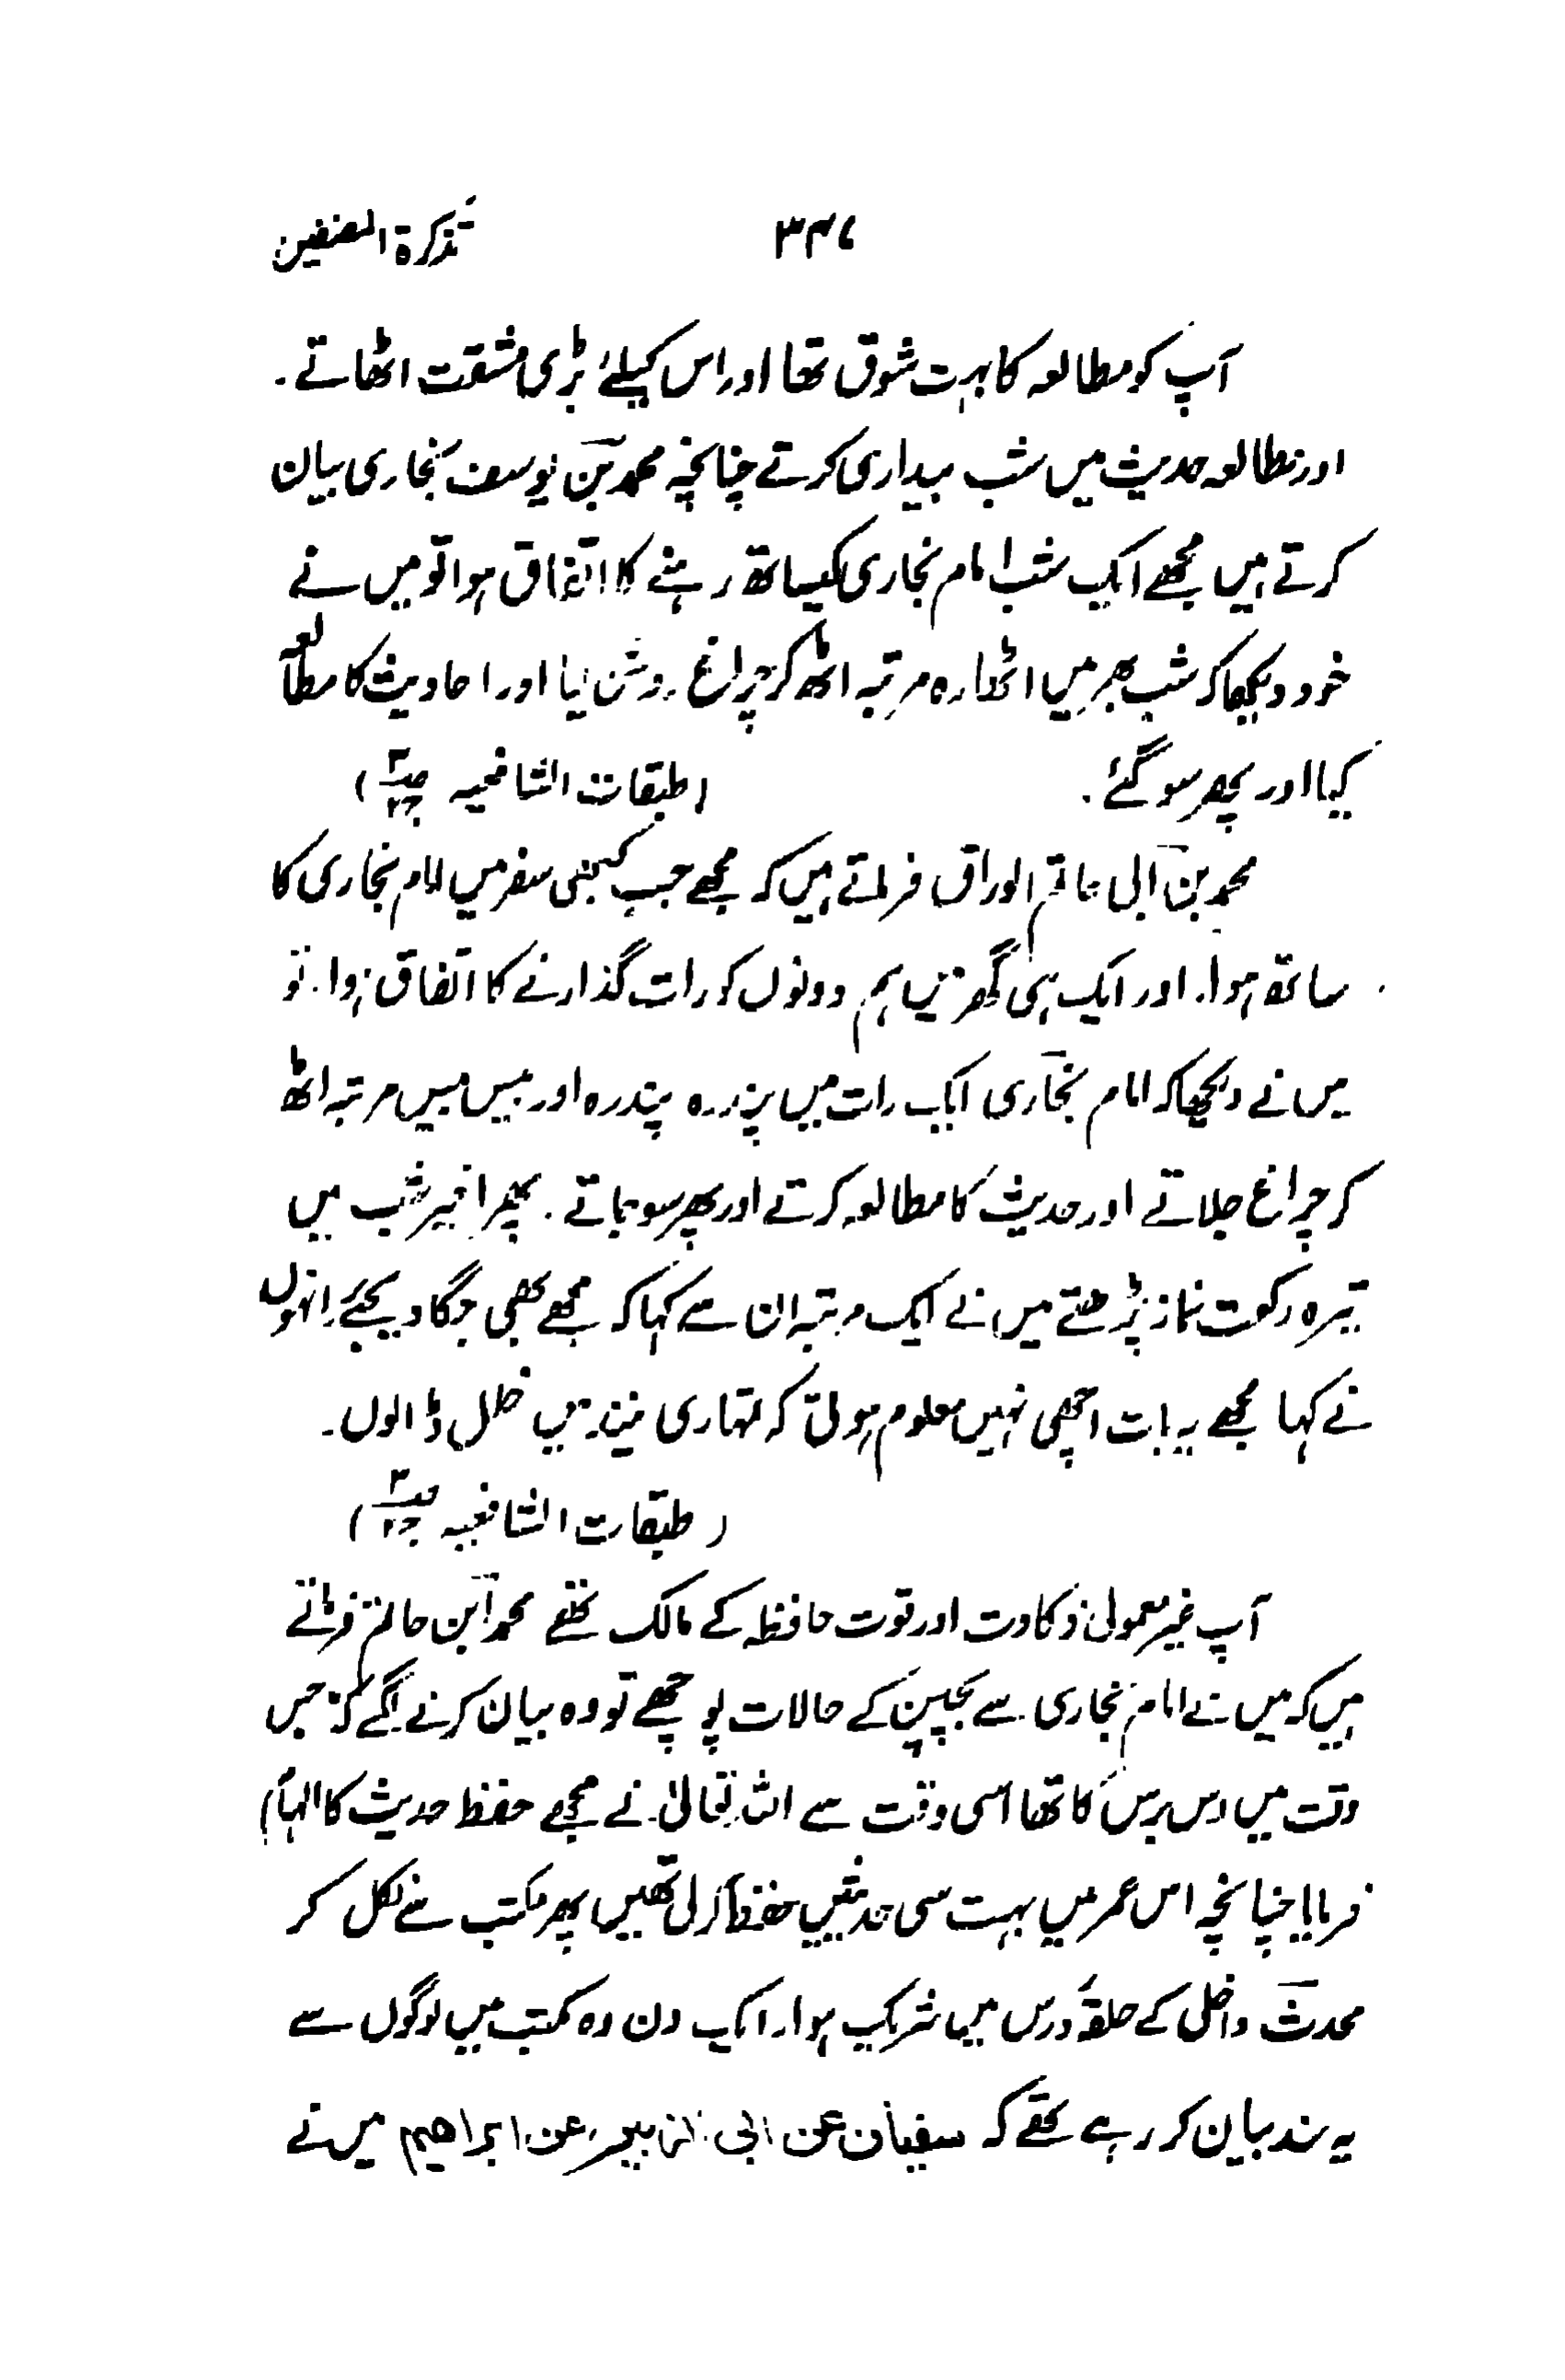 تذکرة المصنفین ۳۴۷
آپ کو مطالعہ کا بہت شوق تھا اور اس کیلئے بڑی مشقت اٹھاتے۔
اور مطالعہ حدیث میں شب بیداری کرتے چنانچہ محمد بن یوسف بخاری بیان
کرتے ہیں مجھے ایک شب امام بخاری کیساتھ رہنے کا اتفاق ہوا تو میں نے
خود دیکھا کہ شب بھر میں اٹھارہ مرتبہ اٹھ کر چراغ روشن کیا اور احادیث کا مطالعہ
کیا اور پھر سو گئے۔ (طبقات الشافعیہ)
محمد بن ابی حاتم الوراق فرماتے ہیں کہ مجھے جب کبھی سفر میں امام بخاری کا
ساتھ ہوا۔ اور ایک ہی گھر میں ہم دونوں کو رات گذارنے کا اتفاق ہوا۔ تو
میں نے دیکھا کہ امام بخاری ایک رات میں پندرہ پندرہ اور بیس بیس مرتبہ اٹھ
کر چراغ جلاتے اور حدیث کا مطالعہ کرتے اور پھر سو جاتے۔ پھر اخیر شب میں
تیرہ رکعت نماز پڑھتے میں نے ایک مرتبہ ان سے کہا کہ مجھے بھی جگا دیجئے انہوں
نے کہا مجھے یہ بات اچھی نہیں معلوم ہوتی کہ تمہاری نیند میں خلل ڈالوں۔
(طبقات الشافعیہ)
آپ غیر معمولی ذکاوت اور قوت حافظہ کے مالک تھے محمد ابن حاتم فرماتے
ہیں کہ میں نے امام بخاری سے بچپن کے حالات پوچھے تو وہ بیان کرنے لگے کہ جس
وقت میں دس برس کا تھا اسی وقت سے اللہ تعالیٰ نے مجھے حفظ حدیث کا الہام
فرمایا چنانچہ اس عمر میں بہت سی حدیثیں حفظ کر لی تھیں پھر مکتب سے نکل کر
محدث داخلی کے حلقۂ درس میں شریک ہوا۔ ایک دن وہ مکتب میں لوگوں سے
یہ سند بیان کر رہے تھے کہ سفیان عن ابی الزبیر عن ابراھیم میں نے